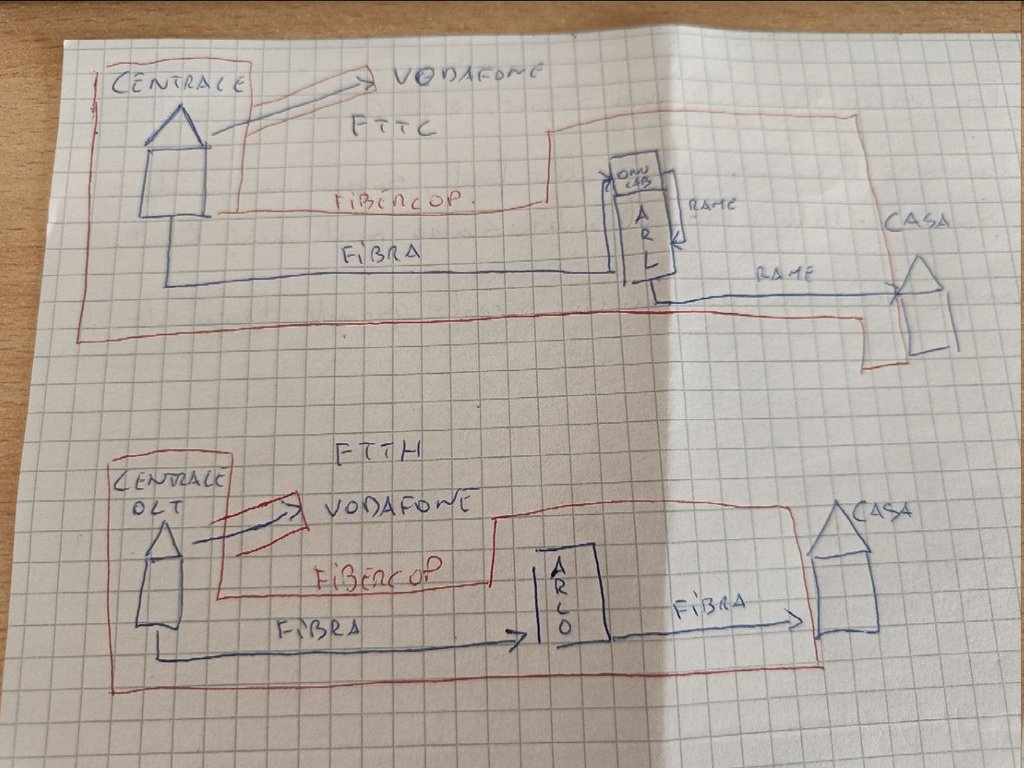 CENTRALE
VODAFONE
FTTC
FIBERCOP
FIBRA
ONU
CAB
ARL
RAME
RAME
CASA
FTTH
CENTRALE
OLT
VODAFONE
FIBERCOP
FIBRA
ARLO
FIBRA
CASA